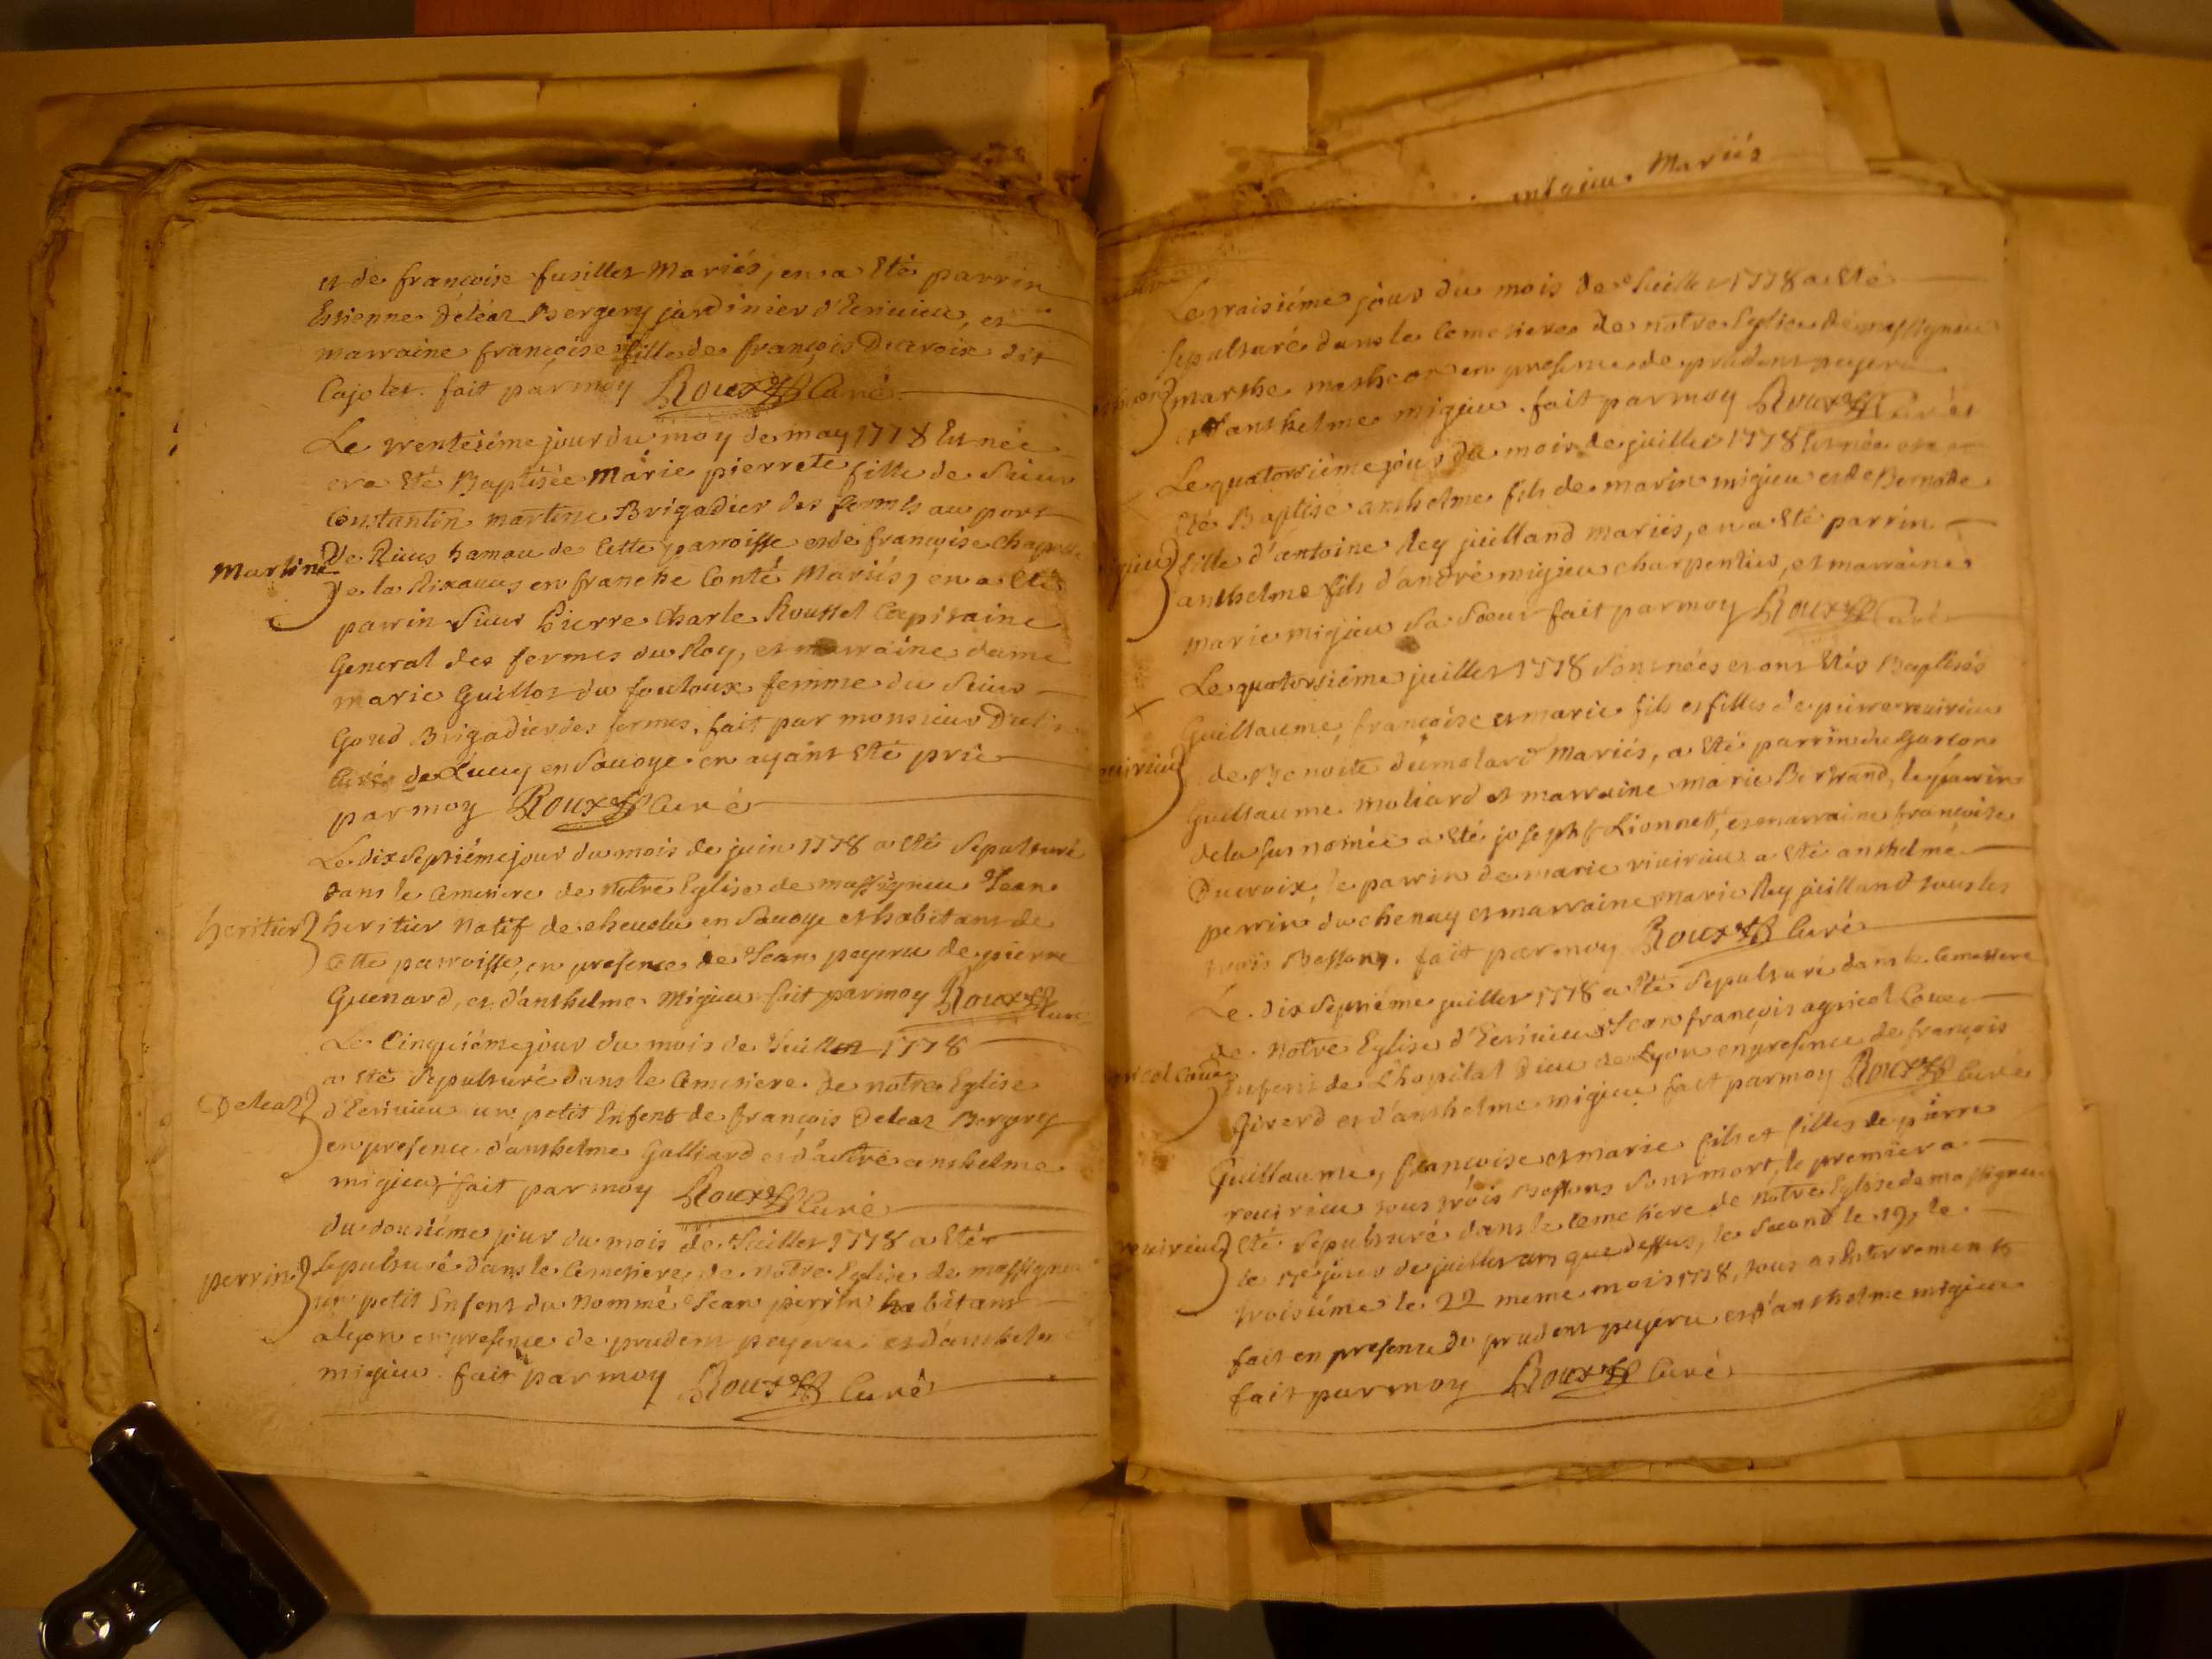 et de francoise fusillet Mariés, en a Eté parrin
Estienne Déléaz Bergery jardinier d'Ecrivieu, et
marraine françoise fille de françois Ducroix dit
Cajolet. fait par moy Roux Curé
Le trentiéme jour du moy de may 1778 Est née
et a Eté Baptisée Marie pierrete fille de Sieur
Constantin martine Brigadier des fermes au port
Martine
de Rives hamau de Cette parroisse et de françoise
de la en franche Conté Mariés, en a Eté
parrin Sieur Pierre Charle Roussel Capitaine
General des fermes du Roy, et marraine dame
marie Guillot du foutoux femme du Sieur
Goud Brigadier des fermes. fait par monsieur
Curé de Lucey en Savoye en ayant Eté prié
par moy Roux Curé
Le dix septiéme jour du mois de juin 1778 a eté Sepulturé
dans le Cemetiere de nôtre Eglise de massignieu Jean
heritier
heritier natif de cheuelu en Savoye et habitant de
Cette parroisse, en presence de Jean payeru de pierre
Guenard, et d'anthelme Migieu fait par moy Roux Curé
Le Cinquiéme jour du mois de Juillet 1778
a eté Sepulturé dans le Cemetiere de notre Eglise
Deleaz
d'Ecrivieu un petit Enfent de françois Deleaz Bergery
en presence d'anthelme Galliard et d'autre anthelme
migieu, fait par moy Roux Curé
du dousiéme jour du mois de Juillet 1778 a Eté
perrin
Sepulturé dans le Cemetiere de notre Eglise de massignieu
un petit Enfent du Nommé Jean perrin habitant
a lyon en presence de prudent payeru et d'anthelme
migieu. fait par moy Roux Curé
Mariés
Le traisiéme jour du mois de Juillet 1778 a Eté
Sepulturé dans le Cemetiere de notre Eglise de massignieu
marthe en presence de prudent payeru
et d'anthelme migieu. fait par moy Roux Curé
Le quatorsiéme jour du mois de juillet 1778 Est née et a
Eté Baptisé anthelme fils de marin migieu et de Bernarde
fille d'antoine Rey juilland mariés, en a Eté parrin
anthelme fils d'andré migieu charpentier, et marraine
marie migieu Sa Soeur fait par moy Roux Curé
Le quatorsiéme juillet 1778 Sont nées et ont Etés Baptisés
Guillaume, françoise et marie fils et filles de pierre reuirieu
de Benoite dumolard Mariés, a Eté parrin du garcon
Guillaume moliard et marraine marie Bertrand, le parrin
de la Surnomée a Eté joseph Lionnet, et marraine francoise
Ducroix, le parrin de marie riuirieu a Eté anthelme
perrin du chenay et marraine marie Rey juilland tous les
trois Bessons. fait par moy Roux Curé
Le dix septiéme juillet 1778 a Eté Sepulturé dans le Cemetiere
de notre Eglise d'Ecrivieu Jean françois agricol
Enfent de L'hopital Dieu de Lyon en presence de françois
Girerd et d'anthelme migieu fait par moy Roux Curé
Guillaume, francoise et marie fils et filles de pierre
reuirieu tous trois Bessons Sont mort, le premier a
reuirieu
Eté Sepulturé dans le Cemetiere de notre Eglise de massignieu
le 17e jour de juillet an que dessus, le Second le 19, le
troisiéme le 22 meme mois 1778, tous as Enterrements
fait en presence de prudent payeru et d'anthelme migieu
fait par moy Roux Curé